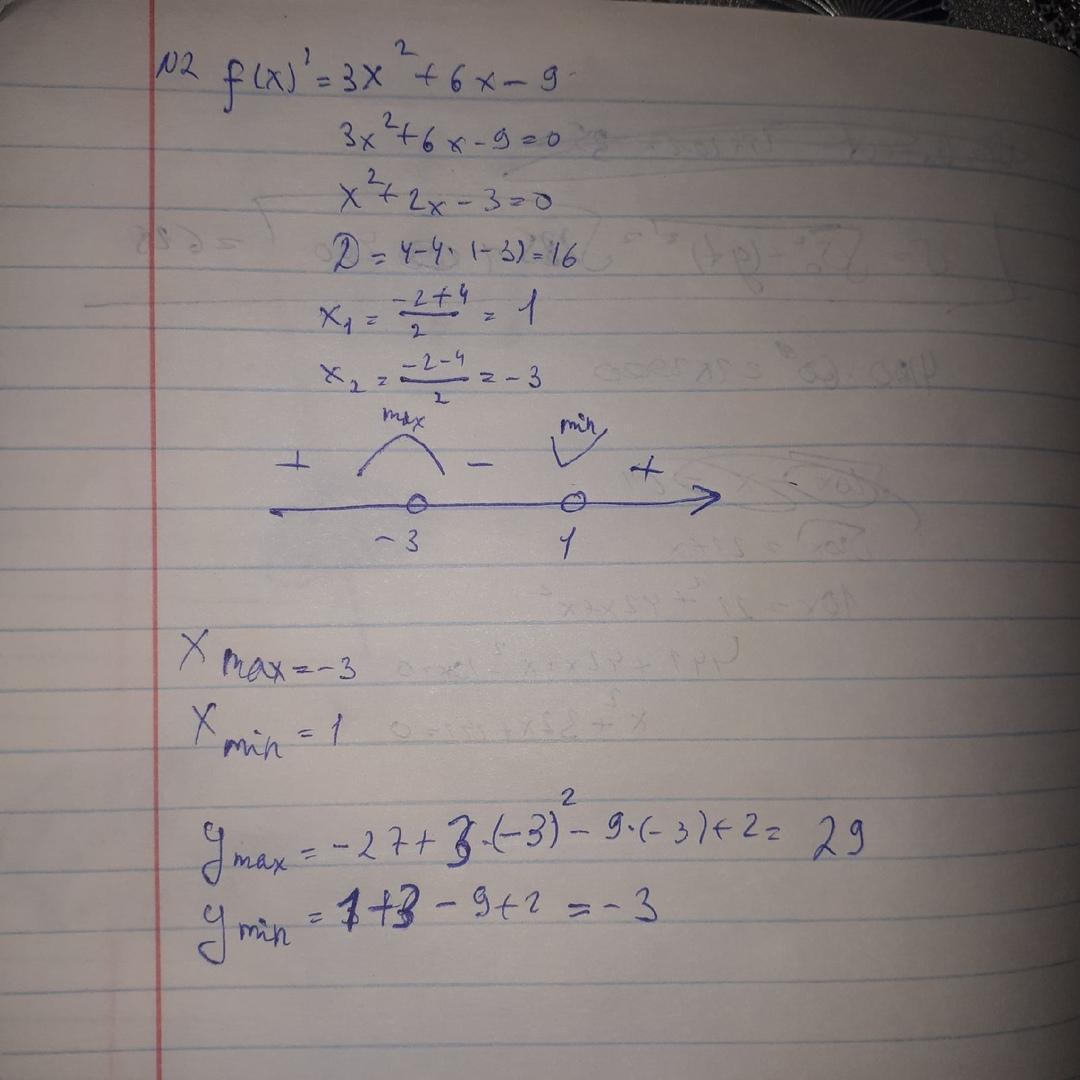 N2 f(x)' = 3x² + 6x - 9
3x² + 6x - 9 = 0
x² + 2x - 3 = 0
D = 4 - 4 · (-3) = 16
x₁ = (-2+4)/2 = 1
x₂ = (-2-4)/2 = -3
max min
+ - +
-3 1
x max = -3
x min = 1
y max = -27 + 3·(-3)² - 9·(-3) + 2 = 29
y min = 1 + 3 - 9 + 2 = -3